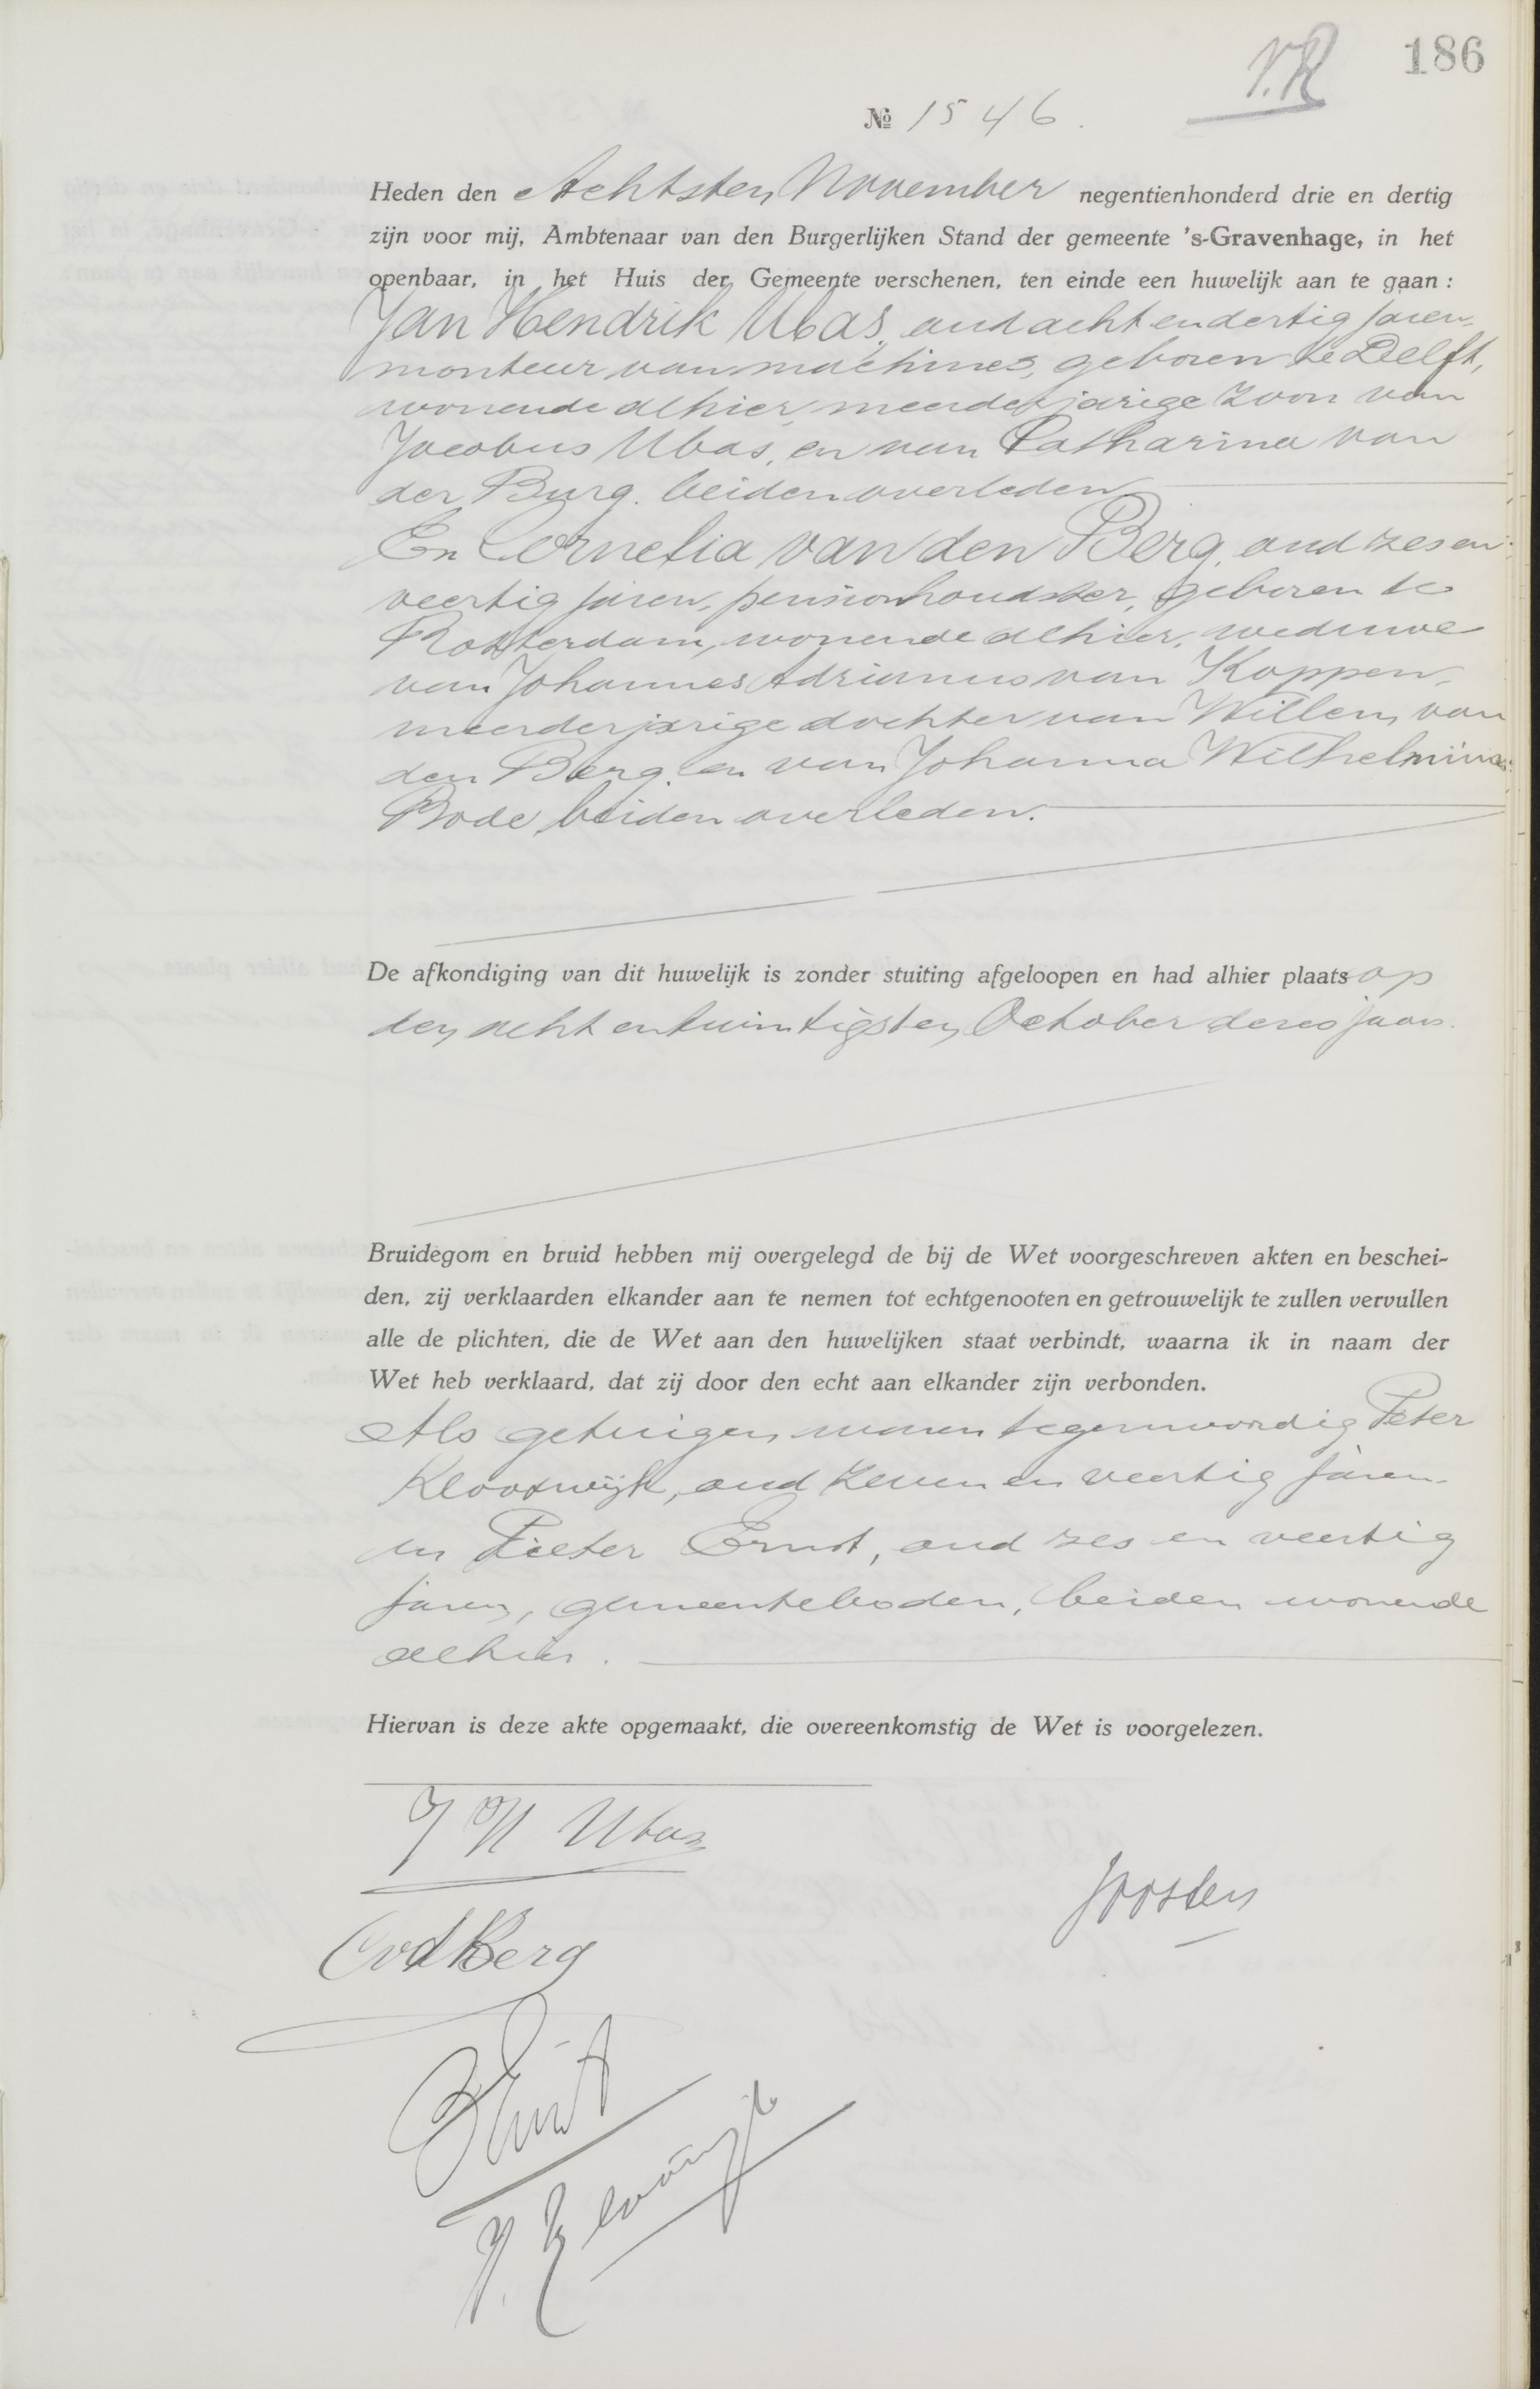 V.R
186
№ 1546.
Heden den Achtsten November negentienhonderd drie en dertig
zijn voor mij, Ambtenaar van den Burgerlijken Stand der gemeente 's-Gravenhage, in het
openbaar, in het Huis der Gemeente verschenen, ten einde een huwelijk aan te gaan:
Jan Hendrik Ubas, oud acht en dertig jaren,
monteur van machines, geboren te Delft,
wonende alhier, meerderjarige zoon van
Jacobus Ubas, en van Catharina van
der Burg, beiden overleden
En Cornelia van den Berg, oud zes en
veertig jaren, pensionhoudster, geboren te
Rotterdam, wonende alhier, weduwe
van Johannes Adrianus van Koppen,
meerderjarige dochter van Willem van
den Berg, en van Johanna Wilhelmina
Bode, beiden overleden.
De afkondiging van dit huwelijk is zonder stuiting afgeloopen en had alhier plaats op
den acht en twintigsten October dezes jaars.
Bruidegom en bruid hebben mij overgelegd de bij de Wet voorgeschreven akten en beschei-
den, zij verklaarden elkander aan te nemen tot echtgenooten en getrouwelijk te zullen vervullen
alle de plichten, die de Wet aan den huwelijken staat verbindt, waarna ik in naam der
Wet heb verklaard, dat zij door den echt aan elkander zijn verbonden.
Als getuigen waren tegenwoordig Peter
Klootwijk, oud zeven en veertig jaren
en Pieter Ernst, oud zes en veertig
jaren, gemeenteboden, beiden wonende
alhier.
Hiervan is deze akte opgemaakt, die overeenkomstig de Wet is voorgelezen.
J H Ubas
Joosten
CvdBerg
P. Klootwijk